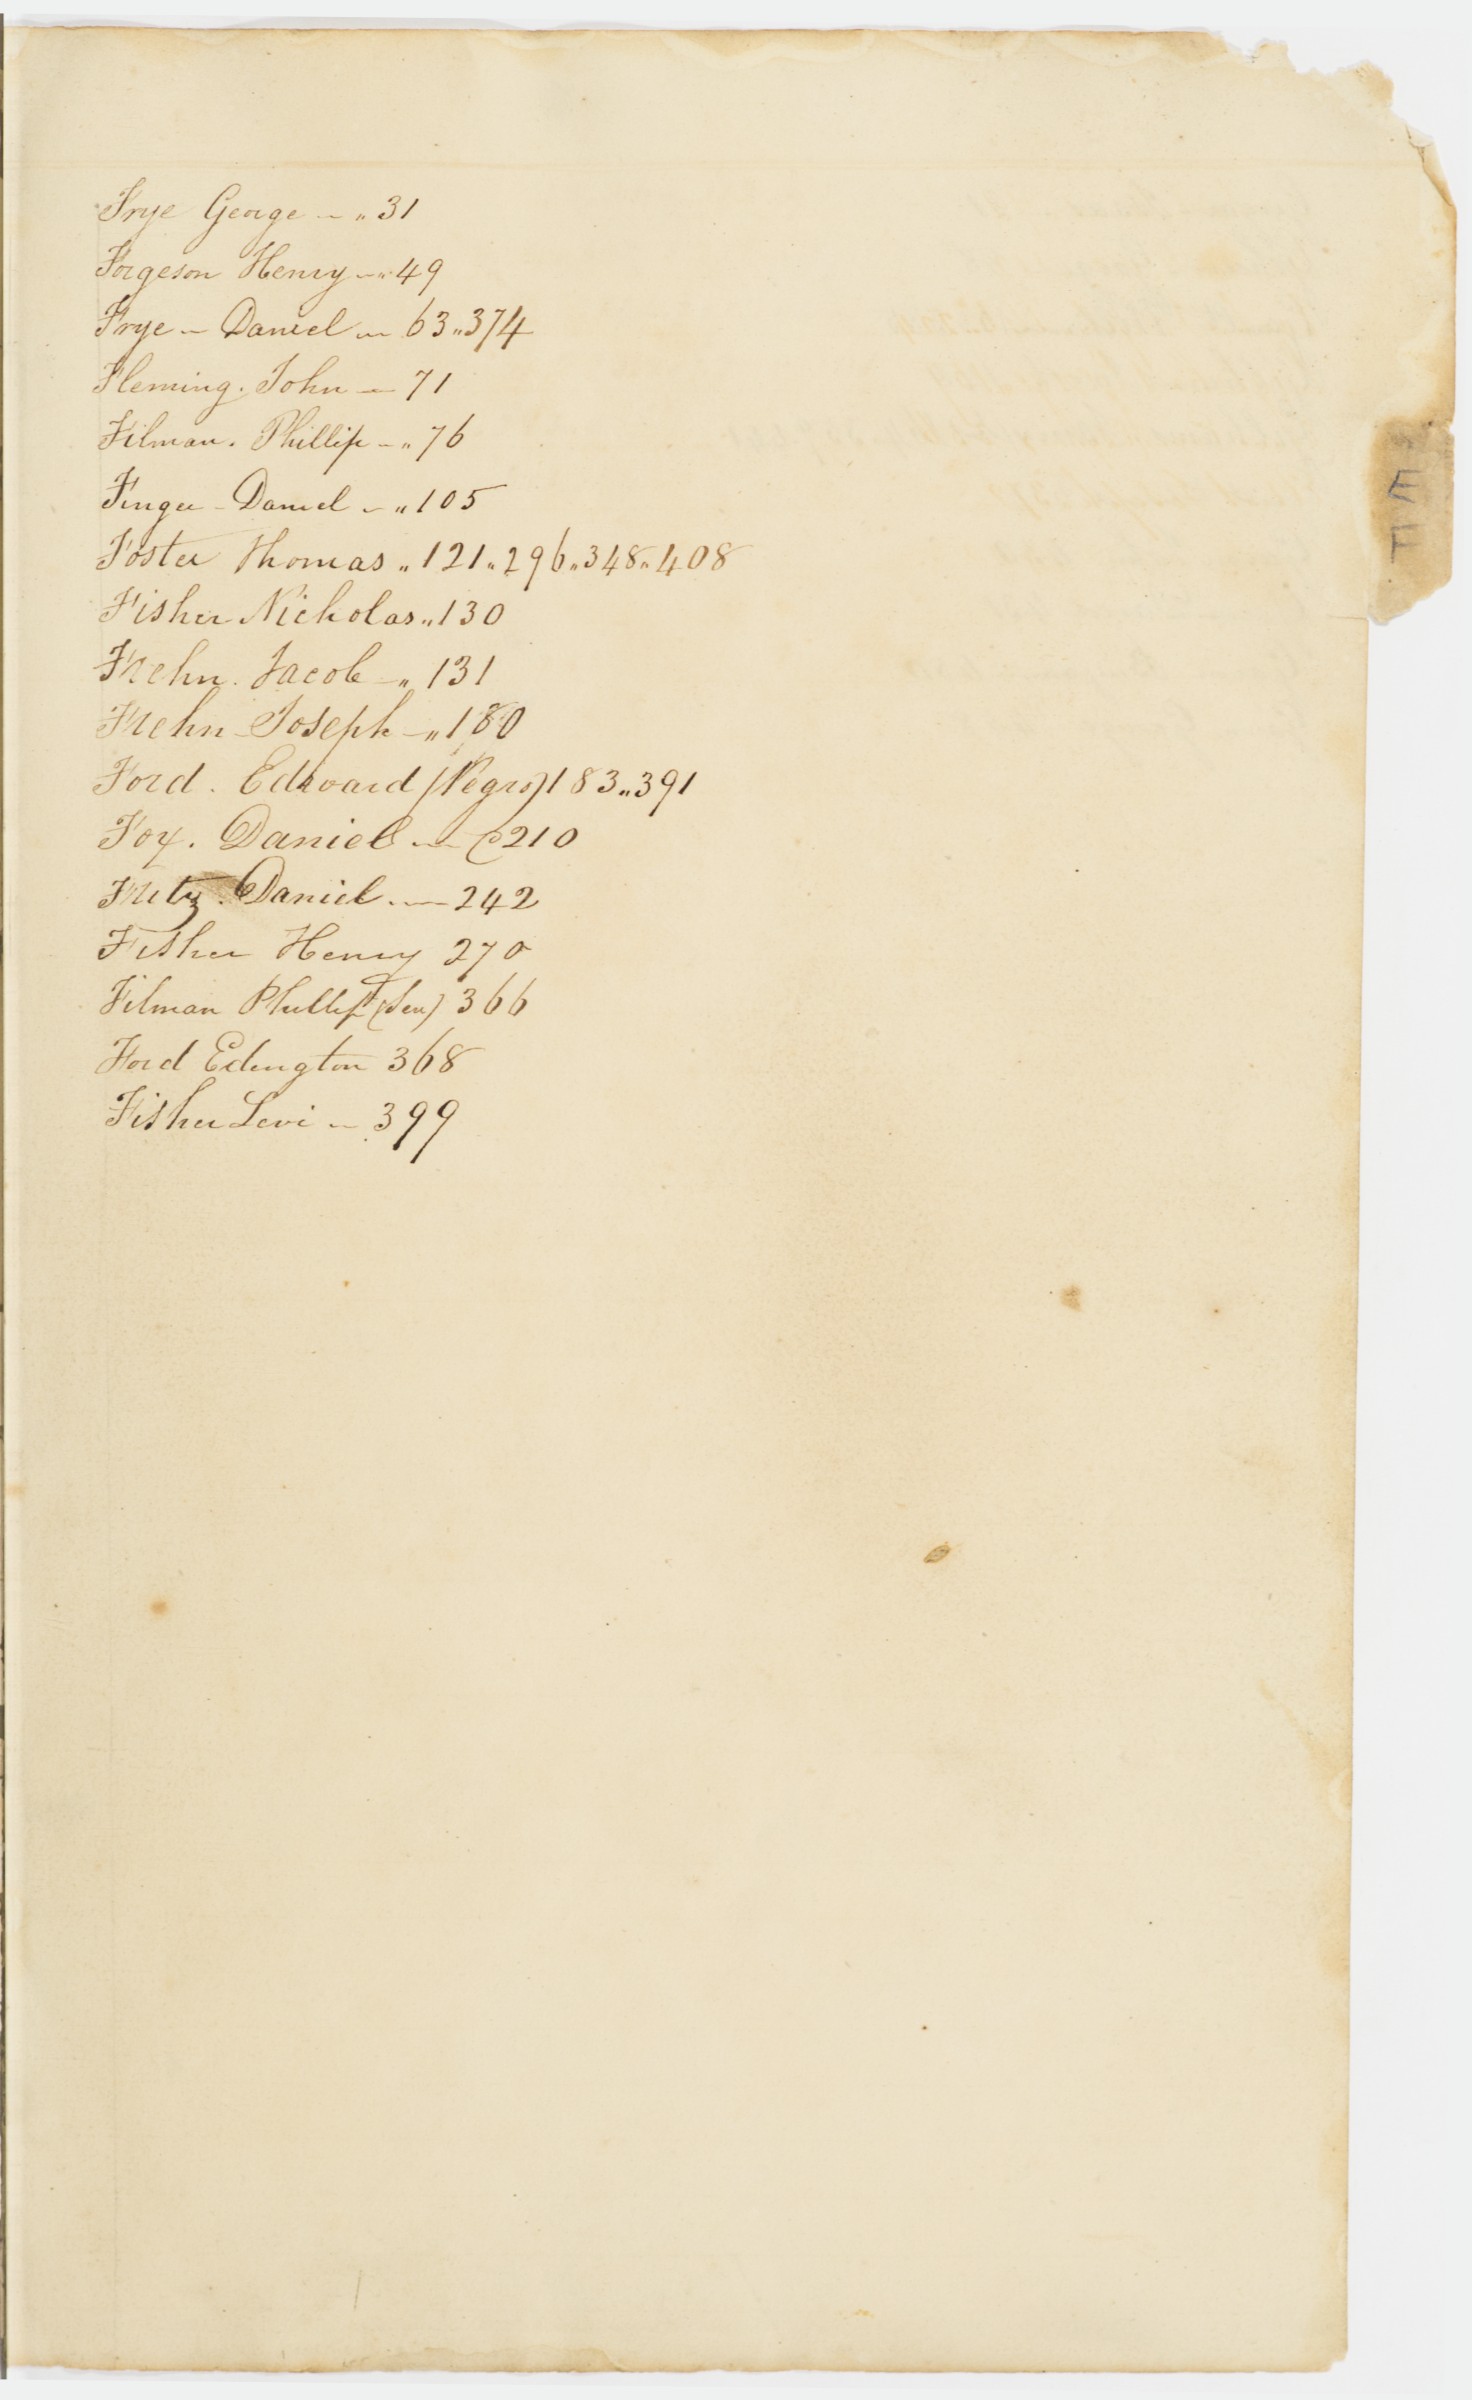 Frye George — „ 31
Forgeson Henry — „ 49
Frye — Daniel — 63 „ 374
Fleming. John — 71
Filman. Phillip — „ 76
Finger — Daniel — „ 105
Foster Thomas „ 121 „ 296 „ 348 „ 408
Fisher Nicholas „ 130
Frehn. Jacob — „ 131
Frehn — Joseph — „ 180
Ford. Edward (Negro) 183 „ 391
Fox. Daniel — 210
Fretz. Daniel — 242
Fisher Henry 270
Filman Phillip (Sen) 366
Ford Edington 368
Fisher Levi — 399
E
F